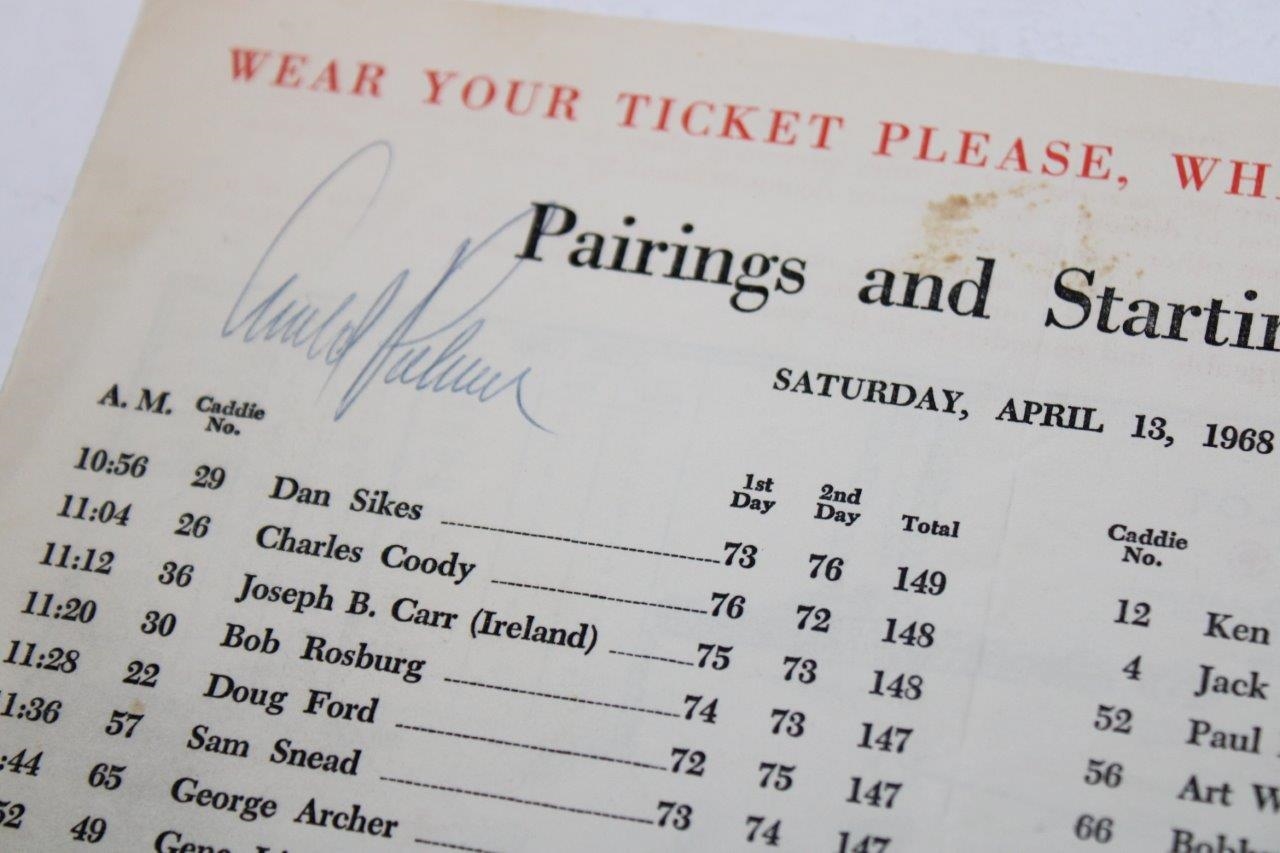 WEAR YOUR TICKET PLEASE,
Arnold Palmer
Pairings and
SATURDAY, APRIL 13, 1968
A. M. Caddie No. 1st Day 2nd Day Total Caddie No.
10:56 29 Dan Sikes 73 76 149 12 Ken
11:04 26 Charles Coody 76 72 148 4 Jack
11:12 36 Joseph B. Carr (Ireland) 75 73 148 52 Paul
11:20 30 Bob Rosburg 74 73 147 56 Art
11:28 22 Doug Ford 72 75 147 66
1:36 57 Sam Snead 73 74 147
:44 65 George Archer
52 49 Gene